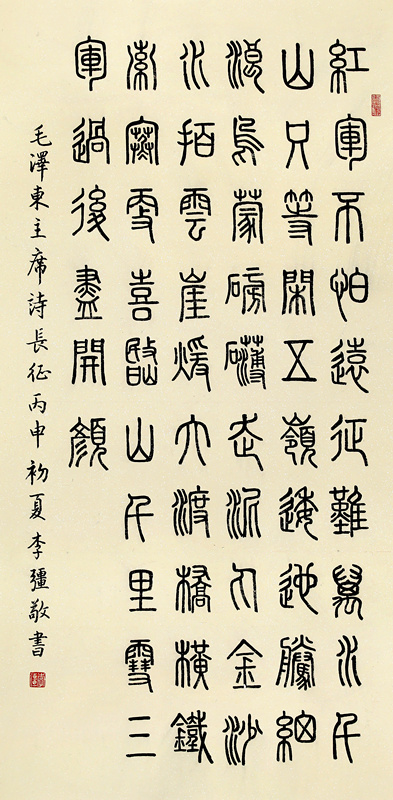 紅軍不怕遠征難萬水千
山只等閑五嶺逶迤騰細
浪烏蒙磅礴走泥丸金沙
水拍雲崖煖大渡橋橫鐵
索寒更喜岷山千里雪三
軍過後盡開顏
毛澤東主席詩長征丙申初夏李疆敬書